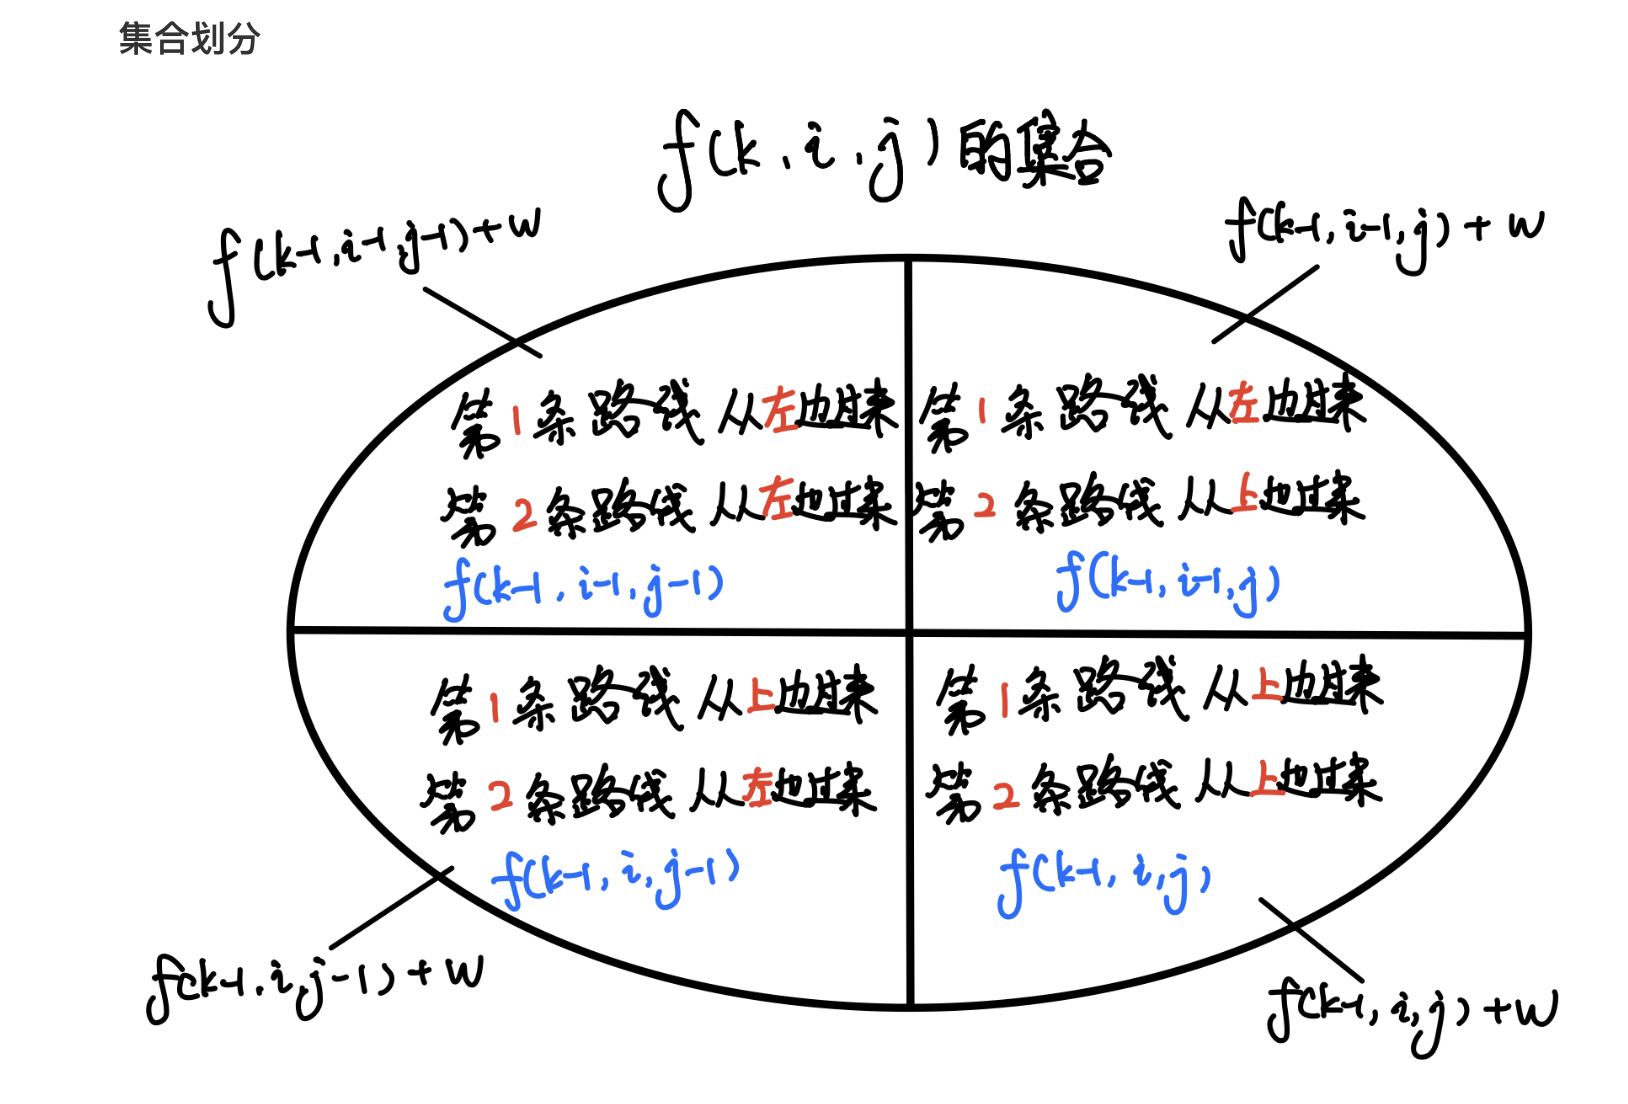 集合划分
f(k,i,j)的集合
f(k-1,i-1,j-1)+w
f(k-1,i-1,j)+w
第1条路线从左边过来
第2条路线从左边过来
f(k-1,i-1,j-1)
第1条路线从左边过来
第2条路线从上边过来
f(k-1,i-1,j)
第1条路线从上边过来
第2条路线从左边过来
f(k-1,i,j-1)
第1条路线从上边过来
第2条路线从上边过来
f(k-1,i,j)
f(k-1,i,j-1)+w
f(k-1,i,j)+w